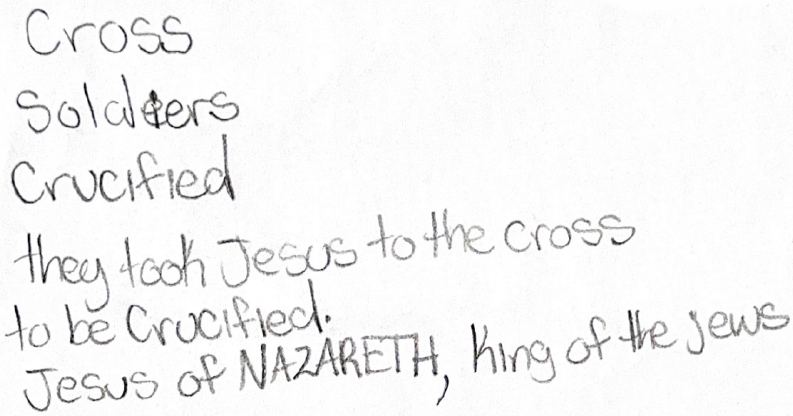 Cross
Soldiers
Crucified
they took Jesus to the cross
to be Crucified.
Jesus of NAZARETH, King of the jews